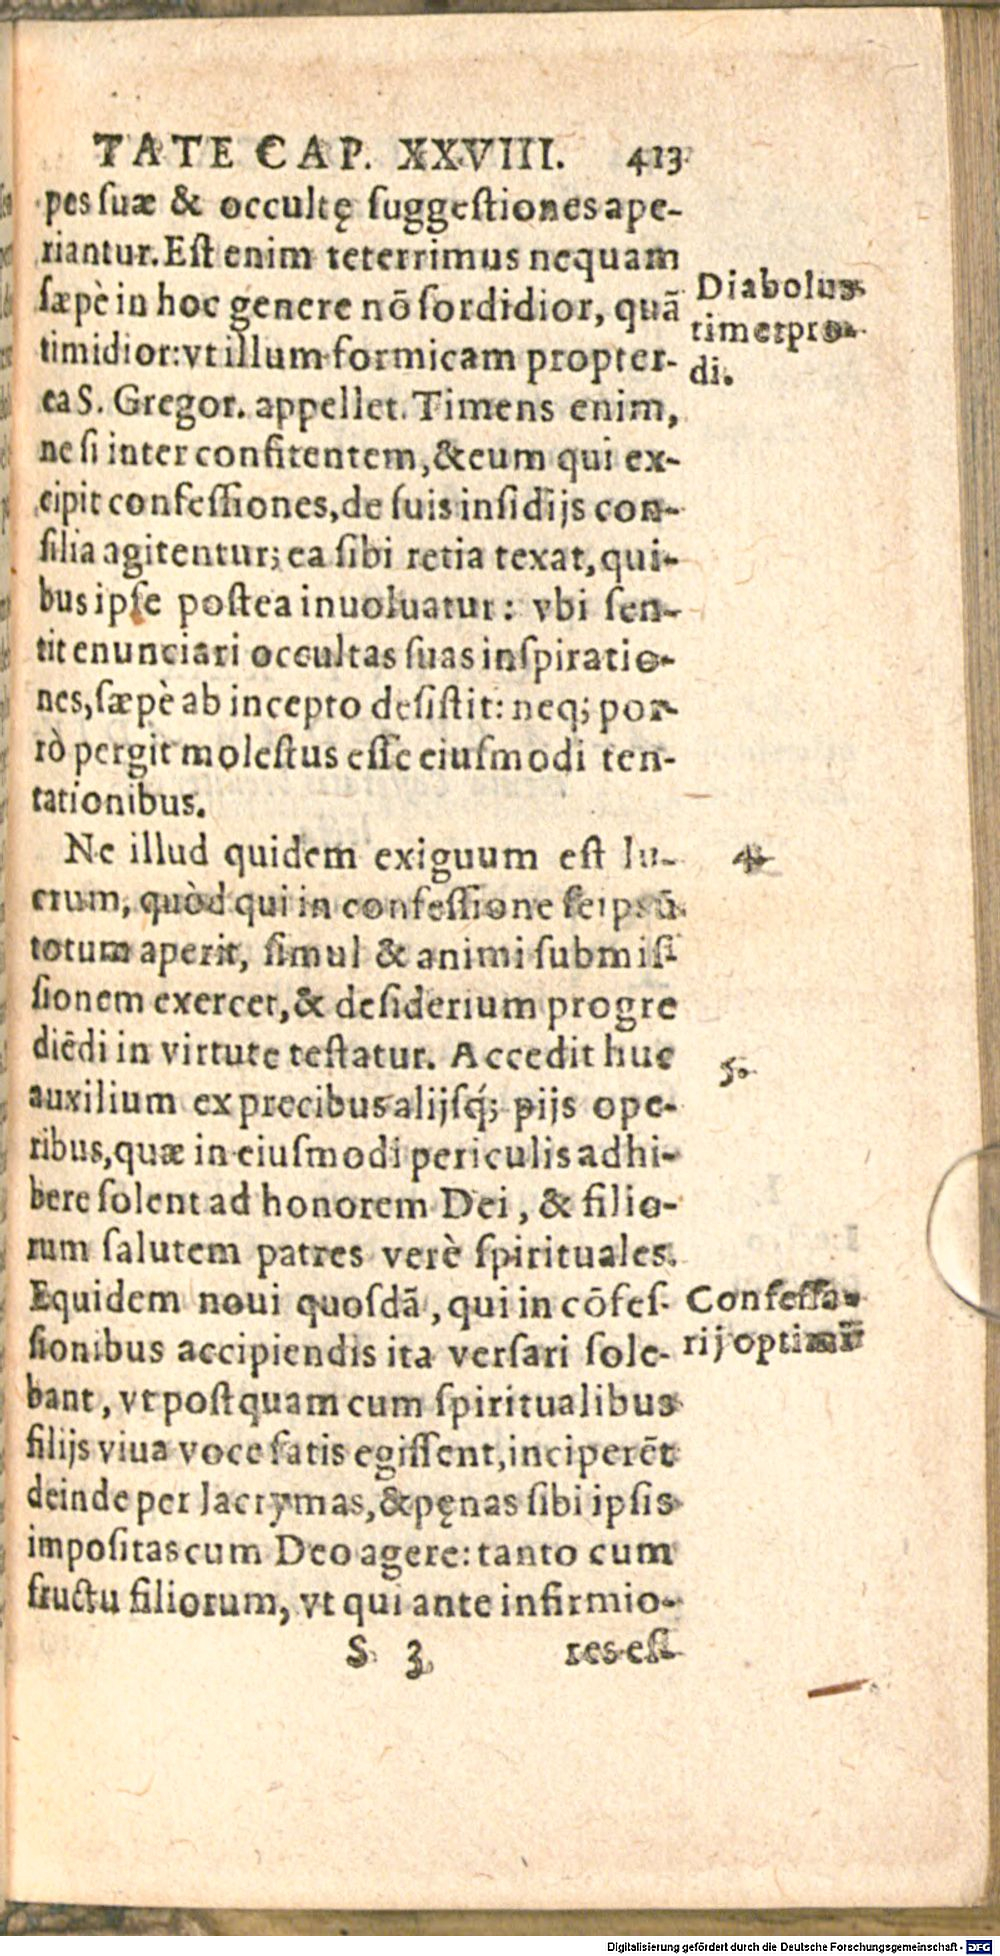 TATE CAP. XXVIII. 413
pes ſuæ & occultę ſuggeſtiones ape-
riantur. Eſt enim teterrimus nequam
ſæpè in hoc genere nõ ſordidior, quã
timidior: vt illum formicam propter-
ea S. Gregor. appellet. Timens enim,
ne ſi inter confitentem, & eum qui ex-
cipit confeſſiones, de ſuis inſidijs con-
ſilia agitentur; ea ſibi retia texat, qui-
bus ipſe poſtea inuoluatur: vbi ſen-
tit enunciari occultas ſuas inſpiratio-
nes, ſæpè ab incepto deſiſtit: neq; por-
rò pergit moleſtus eſſe eiuſmodi ten-
tationibus.
Diabolus
timet pro-
di.
Ne illud quidem exiguum eſt lu-
crum, quòd qui in confeſſione ſeipſũ
totum aperit, ſimul & animi ſubmiſ-
ſionem exercet, & deſiderium progre
diēdi in virtute teſtatur. Accedit huc
auxilium ex precibus alijſq́; pijs ope-
ribus, quæ in eiuſmodi periculis adhi-
bere ſolent ad honorem Dei, & filio-
rum ſalutem patres verè ſpirituales.
Equidem noui quoſdã, qui in cōfeſ-
ſionibus accipiendis ita verſari ſole-
bant, vt poſtquam cum ſpiritualibus
filijs viua voce ſatis egiſſent, inciperēt
deinde per lacrymas, & pęnas ſibi ipſis
impoſitas cum Deo agere: tanto cum
fructu filiorum, vt qui ante infirmio-
4.
5.
Confeſſa-
rij optimi
S 3 res eſſ